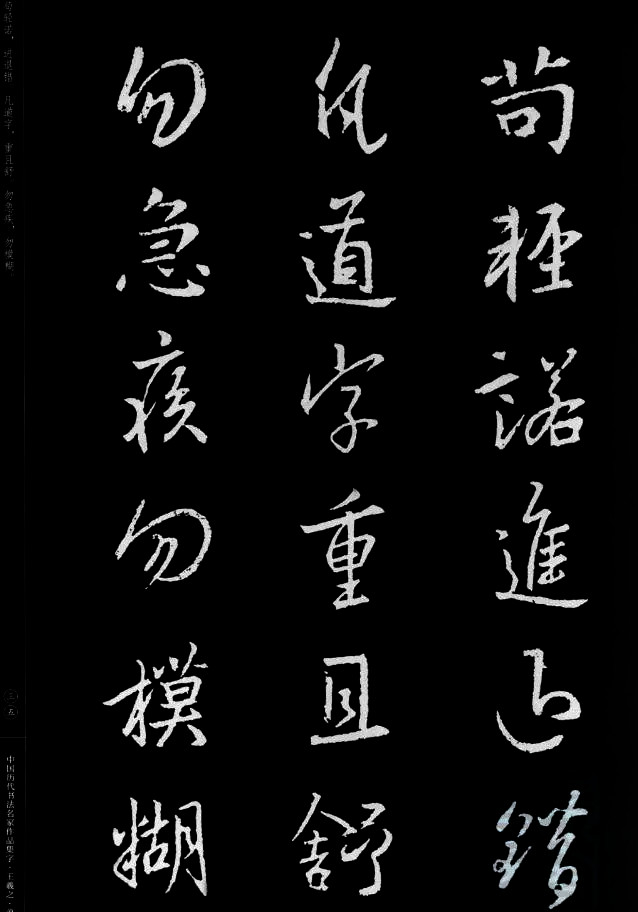 苟輕諾進退錯
凡道字重且舒
勿急疾勿模糊
苟轻诺，进退错 凡道字，重且舒 勿急疾，勿模糊
三五
中国历代书法名家作品集字·王羲之